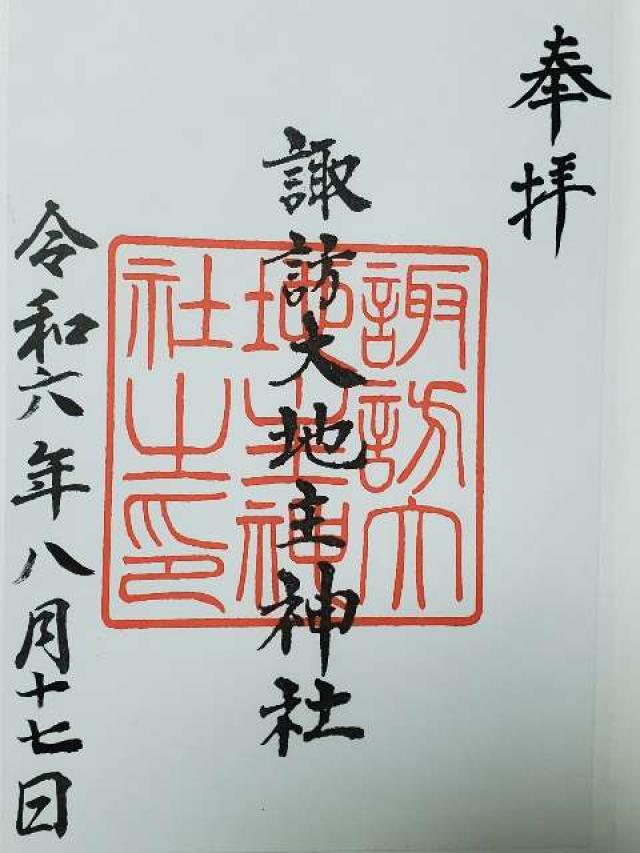 奉拝
諏訪大地主神社
諏訪大
地主神
社之印
令和六年八月十七日